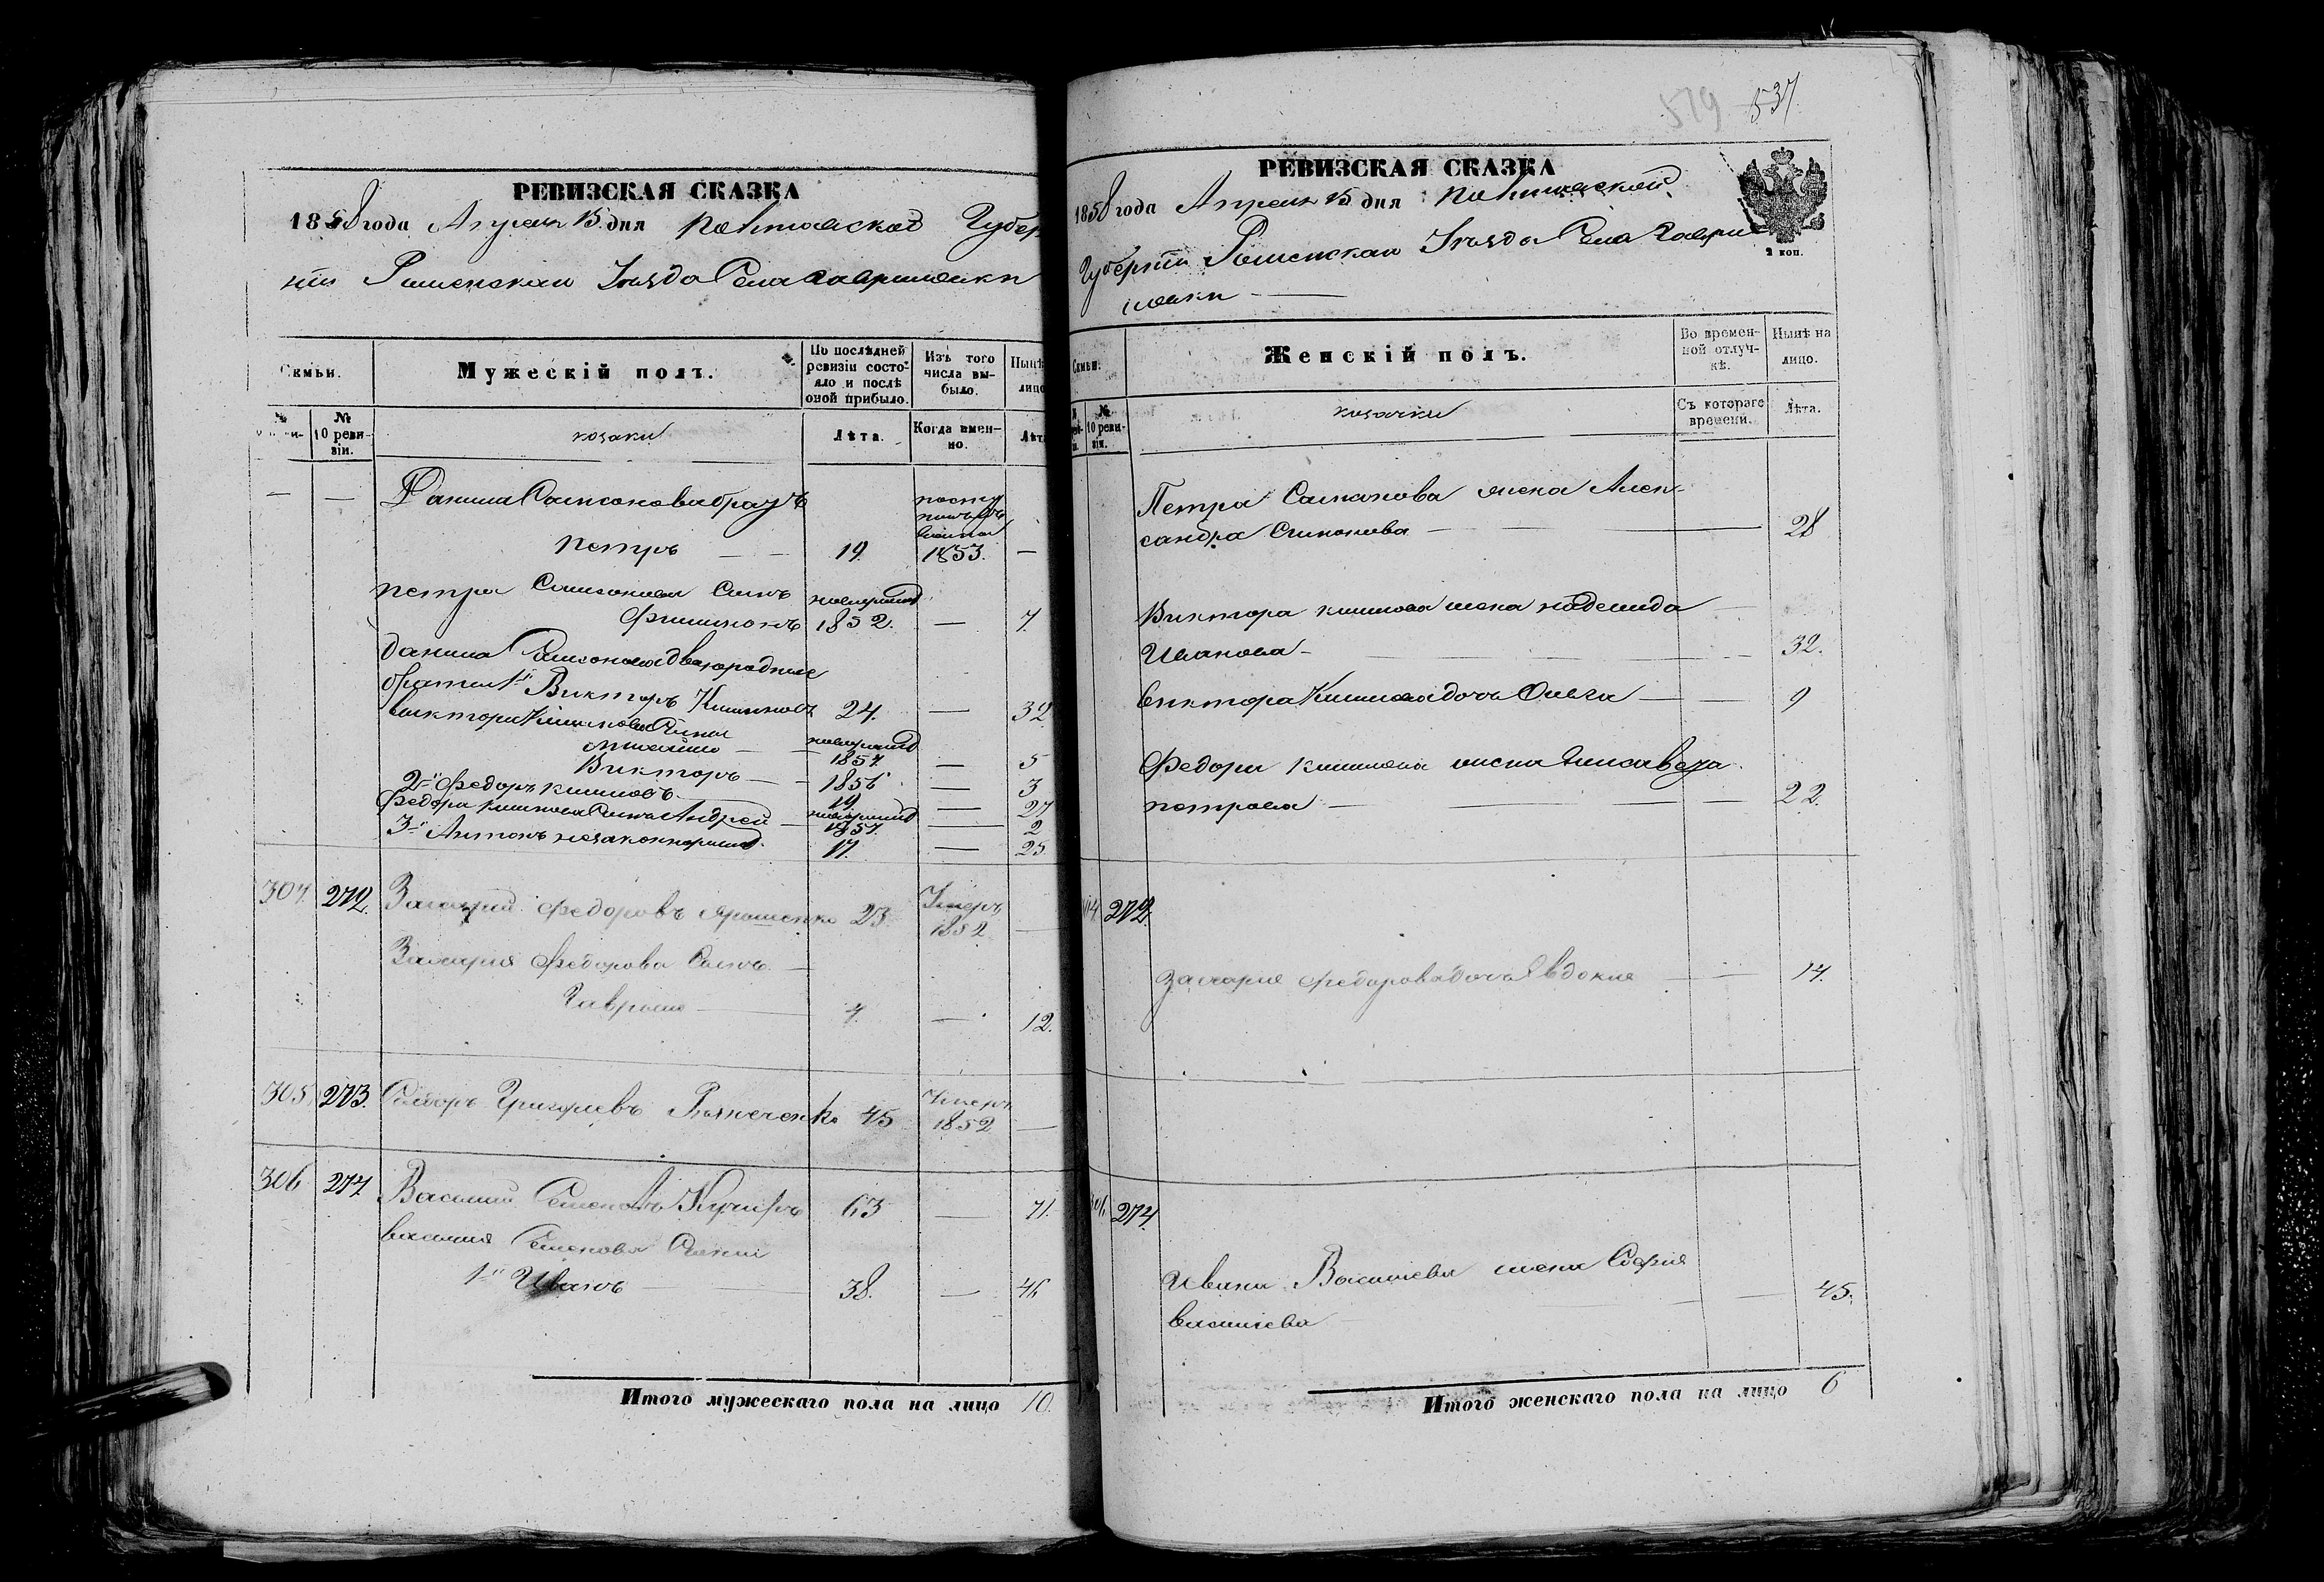 РЕВИЗСКАЯ СКАЗКА
1858 года Апреля 15 дня Полтавской Губер
нии Роменскаго Уезда Села Гаврилвки
Семьи.
Мужескій полъ.
По послѣдней ревизіи состояло и послѣ оной прибыло.
Изъ того числа выбыло.
Нынѣ
лицо
№
№ 10 ревизіи.
козаки
Лѣта.
Когда именно.
Лѣт
— — Данила Самсонова братъ
Петръ — — 19. 1853. —
Петра Самсонова Сынъ
Филимонъ 1852. — 7.
Данила Самсонова двоюродные
братья 1й Викторъ 24. — 32
Виктора
1854. — 5
Викторъ — 1856 — 3
2й Федоръ 19. — 27
Федора Андрей 1857. — 2
3й Антонъ незаконнорожд. 17. — 25
304. 272. Захарий Федоровъ Ярошенко 23. Умеръ 1852 —
Захария Федорова Сынъ —
Гаврило — 4. — 12.
305 273. Григорьевъ 45 Умеръ 1852 —
306 274 Василий Семеновъ 63 — 71.
Василия Семенова Сыны
1й Иванъ — 38. — 46
Итого мужескаго пола на лицо 10.
519 537.
РЕВИЗСКАЯ СКАЗКА
1858 года Апреля 15 дня Полтавской
Губернии Роменскаго Уезда Села Гаври
2 коп.
Семьи.
Женскій полъ.
Во временной отлучкѣ.
Нынѣ на лицо.
№ 10 ревизіи.
козачки
Съ котораго времени.
Лѣта.
Петра Самсонова жена Алек-
сандра — 28
Виктора жена Надежда
Иванова — 32.
Виктора дочь Ольга — — 9
Федора жена Елисавета
Петрова — — 22.
272.
Захария Федорова дочь Евдокия — — 14.
274.
Ивана Васильева жена София
Васильева — — 45.
Итого женскаго пола на лицо 6